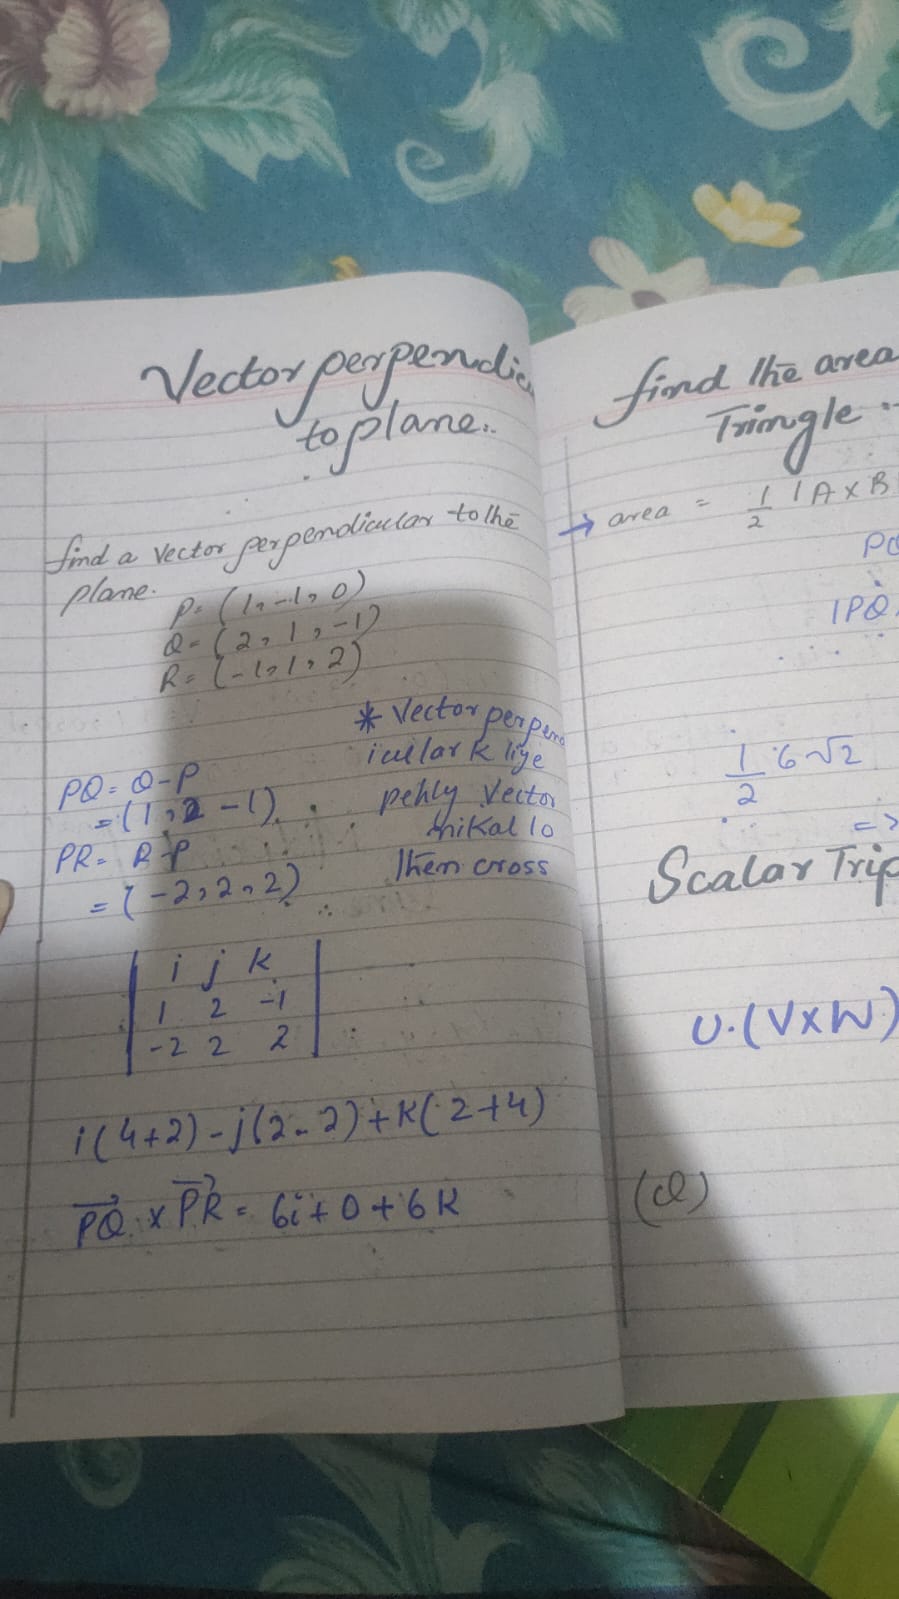 Vector perpendic
to plane:.
find a vector perpendicular to the
plane.
P= (1, -1, 0)
Q= (2, 1, -1)
R= (-1, 1, 2)
* Vector perpend
icullar k liye
pehly Vector
nikal lo
then cross
PQ = Q-P
= (1, 2 -1)
PR= R-P
= (-2, 2, 2)
i j k
1 2 -1
-2 2 2
i(4+2)-j(2-2)+K(2+4)
PQ x PR = 6i+0+6K
find the area
Tringle :-
→ area = 1/2 |A X B
PQ
|PQ
1/2 6√2
=>
Scalar Trip
U.(VXW)